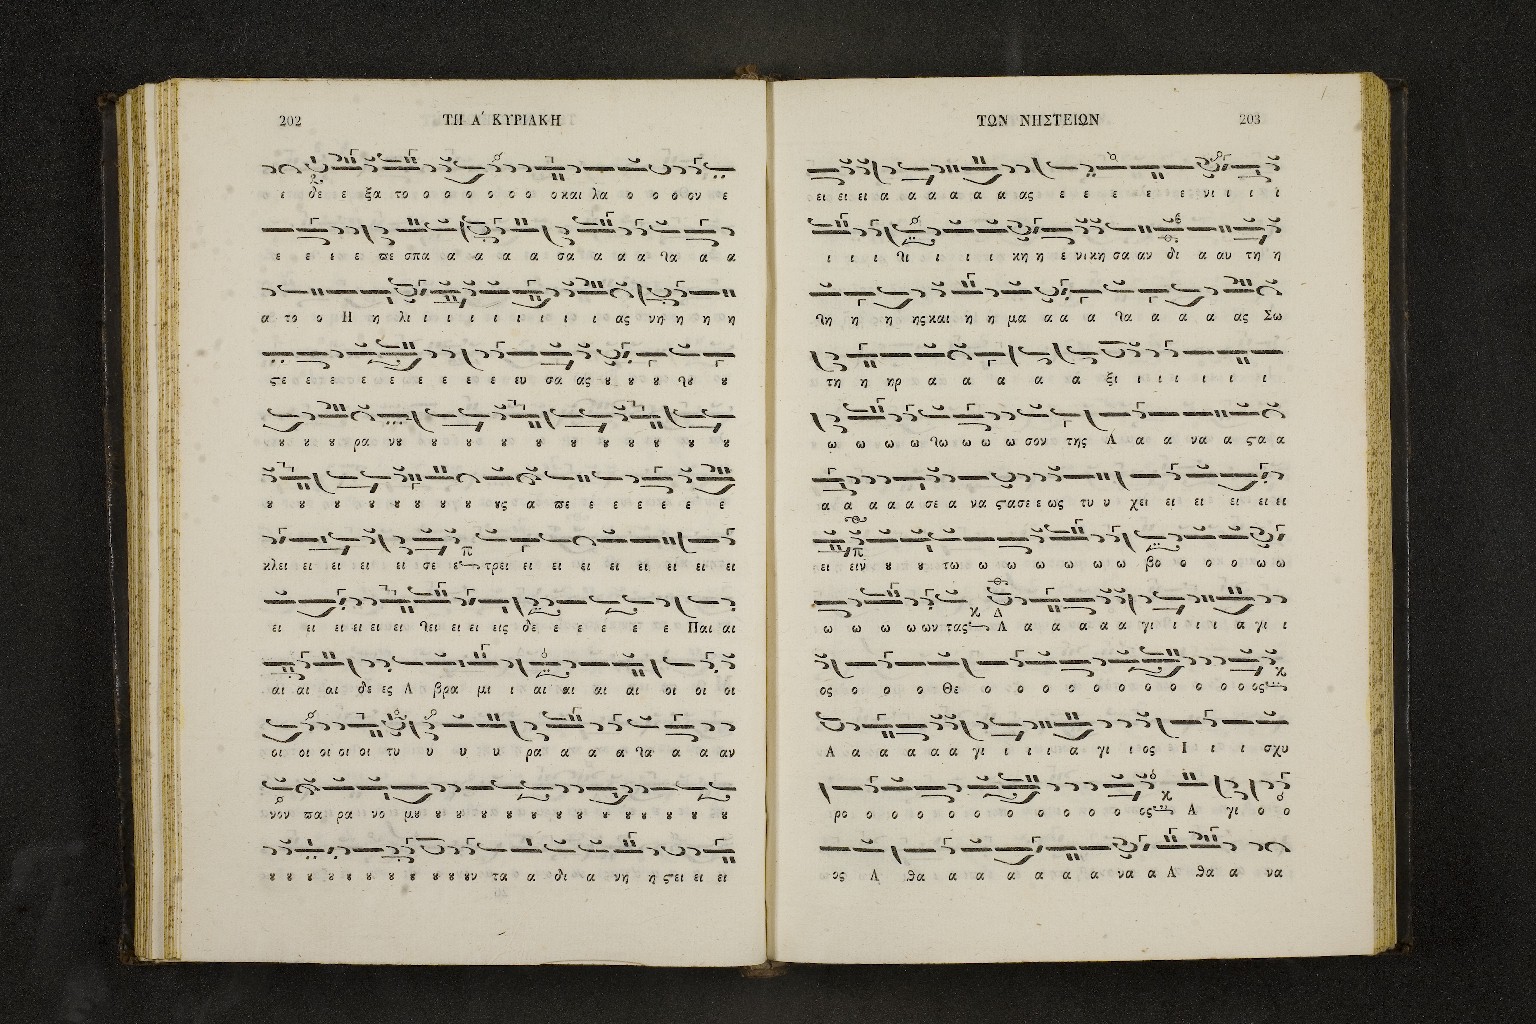 202 ΤΗ Α΄ ΚΥΡΙΑΚΗ
ε δε ε ξα το ο ο ο ο ο ο ο και λα ο ο ο ον ε
ε ε ι ε πε σπα α α α α σα α α α α α α
α το ο Η η λι ι ι ι ι ι ι ι ας νη η η η
ϛε ε ε ε ε ε ε ε ε ευ σα ας ȣ ȣ ȣ ȣ ȣ
ȣ ȣ ȣ ρα νȣ ȣ ȣ ȣ ȣ ȣ ȣ ȣ ȣ ȣ ȣ
ȣ ȣ ȣ ȣ ȣ ȣ ȣ ȣ ȣς α πε ε ε ε ε ε ε
κλει ει ει ει ει σε ε τρει ει ει ει ει ει ει ει ει
ει ει ει ει ει ει ει ει ει εις δε ε ε ε ε ε Παι αι
αι αι αι δε ες Α βρα μι ι αι αι αι αι οι οι οι
οι οι οι οι οι τυ υ υ υ υ ρα α α α α α α αν
νον πα ρα νο μȣ ȣ ȣ ȣ ȣ ȣ ȣ ȣ ȣ ȣ ȣ ȣ
ȣ ȣ ȣ ȣ ȣ ȣ ȣ ȣ ȣ ȣ ȣν τα α δι α νη η ϛει ει ει
ΤΩΝ ΝΗΣΤΕΙΩΝ 203
ει ει ει α α α α α α ας ε ε ε ε ε νι ι ι ι
ι ι ι ι ι ι ι κη η ε νικη σα αν δι α αυ τη η
η η η ης και η η μα α α α α α α α ας Σω
τη η ηρ α α α α α α ξι ι ι ι ι ι
ω ω ω ω ω ω ω ω σον της Α α α να α ϛα α
α α α α α σε α να ϛασε ε ως τυ υ χει ει ει ει ει ει
ει ειν ȣ ȣ τω ω ω ω ω ω ω βο ο ο ο ω ω
ω ω ω ω ων τας Α α α α α α γι ι ι ι α γι ι
ος ο ο ο Θε ο ο ο ο ο ο ο ο ο ο ο ος
Α α α α α α γι ι ι ι α γι ι ος Ι ι ι σχυ
ρο ο ο ο ο ο ο ο ο ο ο ος Α γι ο ο
ος Α θα α α α α α α να α Α θα α να